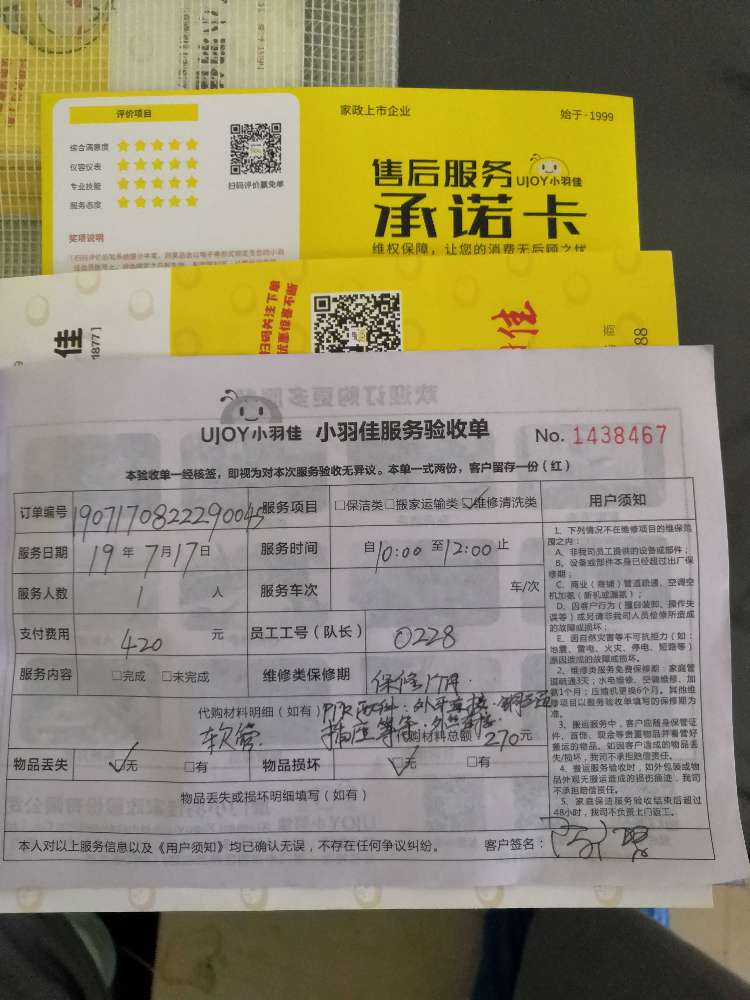 评价项目
家政上市企业
始于·1999
综合满意度
仪容仪表
专业技能
服务态度
扫码评价赢免单
售后服务 UJOY小羽佳
承诺卡
维权保障，让您的消费无后顾之忧
奖项说明
扫码关注下单
优惠惊喜不断
佳
佳
1877]
商
88
UJOY小羽佳 小羽佳服务验收单 No. 1438467
本验收单一经核签，即视为对本次服务验收无异议。本单一式两份，客户留存一份（红）
订单编号 1907170822290045 服务项目 □保洁类□搬家运输类☑维修清洗类 用户须知
服务日期 19 年 7 月 17 日 服务时间 自 10:00 至 12:00 止
服务人数 1 人 服务车次 车/次
支付费用 420 元 员工工号（队长） 0228
服务内容 □完成 □未完成 维修类保修期 保修1个月.
代购材料明细（如有）
软管 插座等等
代购材料总额 270 元
物品丢失 ☑无 □有 物品损坏 ☑无 □有
物品丢失或损坏明细填写（如有）
本人对以上服务信息以及《用户须知》均已确认无误，不存在任何争议纠纷。 客户签名：
1、下列情况不在维修项目的维保范
围之内：
A、非我司员工提供的设备或部件；
B、设备或部件本身已经超过出厂保
修期；
C、商业（商铺）管道疏通、空调空
机加氟（新机或漏氟）；
D、因客户行为（擅自装卸、操作失
误等）或另请非我司人员检修所造成
的故障或损坏；
E、因自然灾害等不可抗拒力（如：
地震、雷电、火灾、停电、短路等）
原因造成的故障或损坏。
2、维修类服务免费保修期：家庭管
道疏通3天；水电维修、空调维修、加
氟1个月；压缩机更换6个月。其他维
修项目以服务验收单填写的保修期为
准。
3、搬运服务中，客户应随身保管证
件、首饰、现金等贵重物品并看管好
搬运的物品。如因客户造成的物品丢
失/损坏，我司不承担赔偿责任。
4、搬运服务验收时，如外包装或物
品外观无搬运造成的损伤痕迹，我司
不承担赔偿责任。
5、家庭保洁服务验收结束后超过
48小时，我司不负责上门返工。